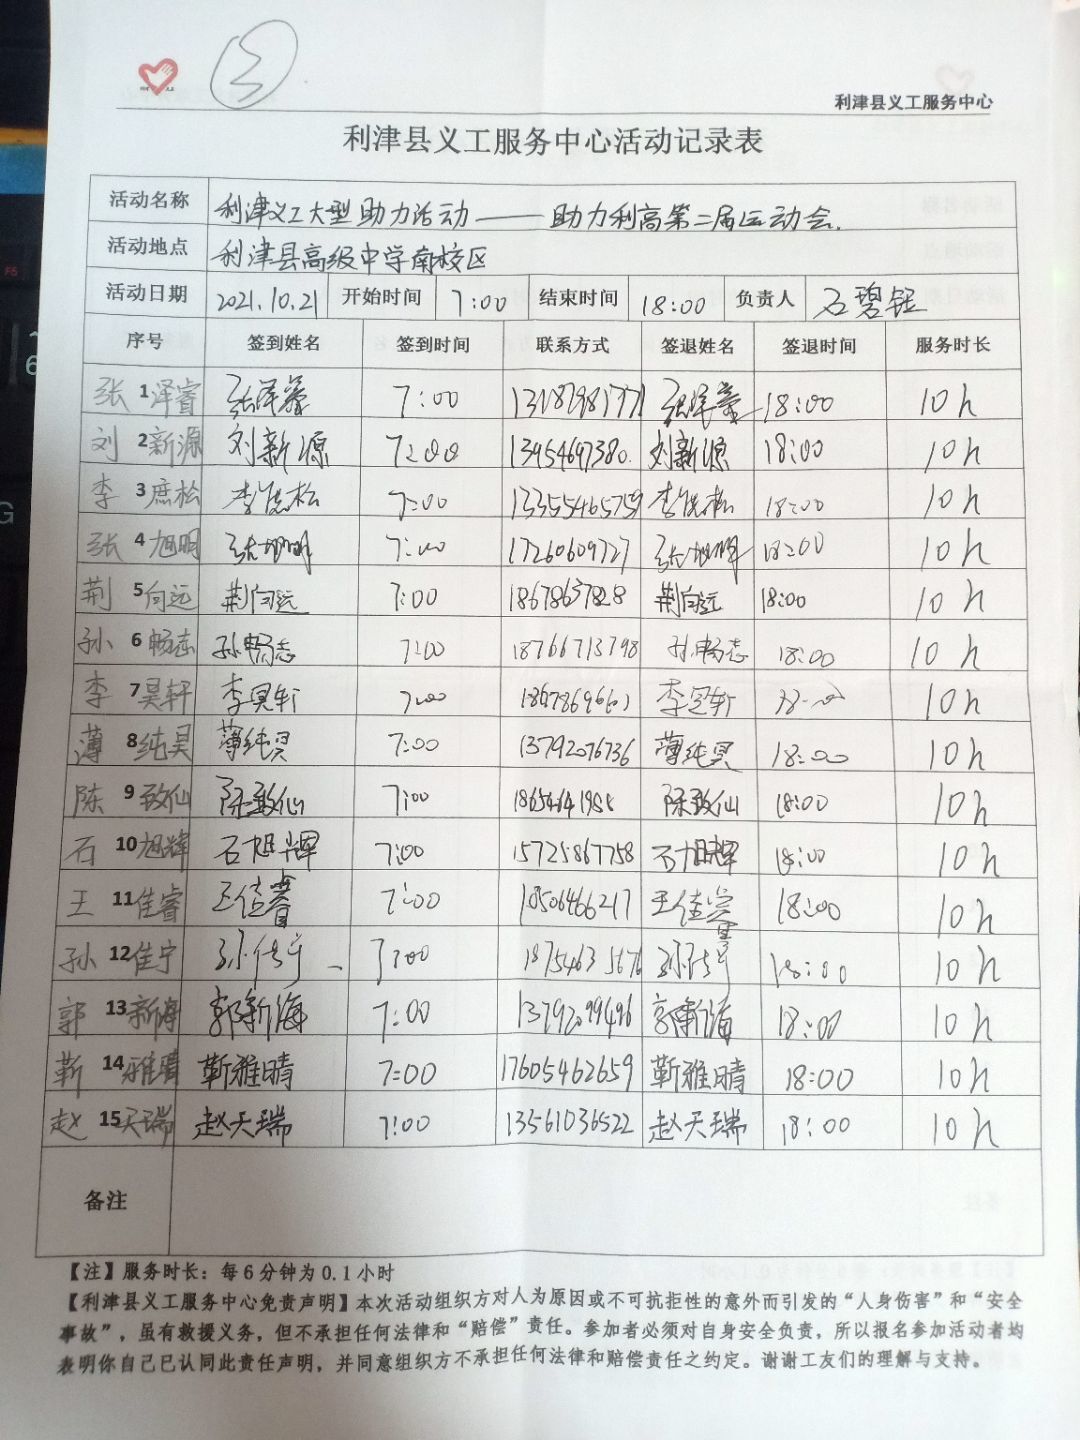 ③
利津县义工服务中心
利津县义工服务中心活动记录表
活动名称 利津义工大型助力活动——助力利高第二届运动会.
活动地点 利津县高级中学南校区
活动日期 2021.10.21 开始时间 7:00 结束时间 18:00 负责人 石碧钰
序号 签到姓名 签到时间 联系方式 签退姓名 签退时间 服务时长
张 1 泽睿 张泽睿 7:00 张泽睿 18:00 10h
刘 2 新源 刘新源 7:00 13954697380 刘新源 18:00 10h
李 3 庶松 7:00 13355465759 18:00 10h
张 4 旭明 张旭明 7:00 17260609727 张旭明 18:00 10h
荆 5 向远 荆向远 7:00 18678637828 荆向远 18:00 10h
孙 6 畅志 孙畅志 7:00 18766713798 孙畅志 18:00 10h
李 7 昊轩 李昊轩 7:00 李昊轩 10h
薄 8 纯昊 薄纯昊 7:00 13792076736 薄纯昊 18:00 10h
陈 9 致仙 陈致仙 7:00 陈致仙 18:00 10h
石 10 旭辉 石旭辉 7:00 15725867758 石旭辉 18:00 10h
王 11 佳睿 王佳睿 7:00 18506466217 王佳睿 18:00 10h
孙 12 佳宁 孙佳宁 7:00 18754635676 孙佳宁 18:00 10h
郭 13 新海 郭新海 7:00 13792099496 郭新海 18:00 10h
靳 14 雅晴 靳雅晴 7:00 17605462659 靳雅晴 18:00 10h
赵 15 天瑞 赵天瑞 7:00 13561036522 赵天瑞 18:00 10h
备注
【注】服务时长：每6分钟为0.1小时
【利津县义工服务中心免责声明】本次活动组织方对人为原因或不可抗拒性的意外而引发的“人身伤害”和“安全
事故”，虽有救援义务，但不承担任何法律和“赔偿”责任。参加者必须对自身安全负责，所以报名参加活动者均
表明你自己已认同此责任声明，并同意组织方不承担任何法律和赔偿责任之约定。谢谢工友们的理解与支持。